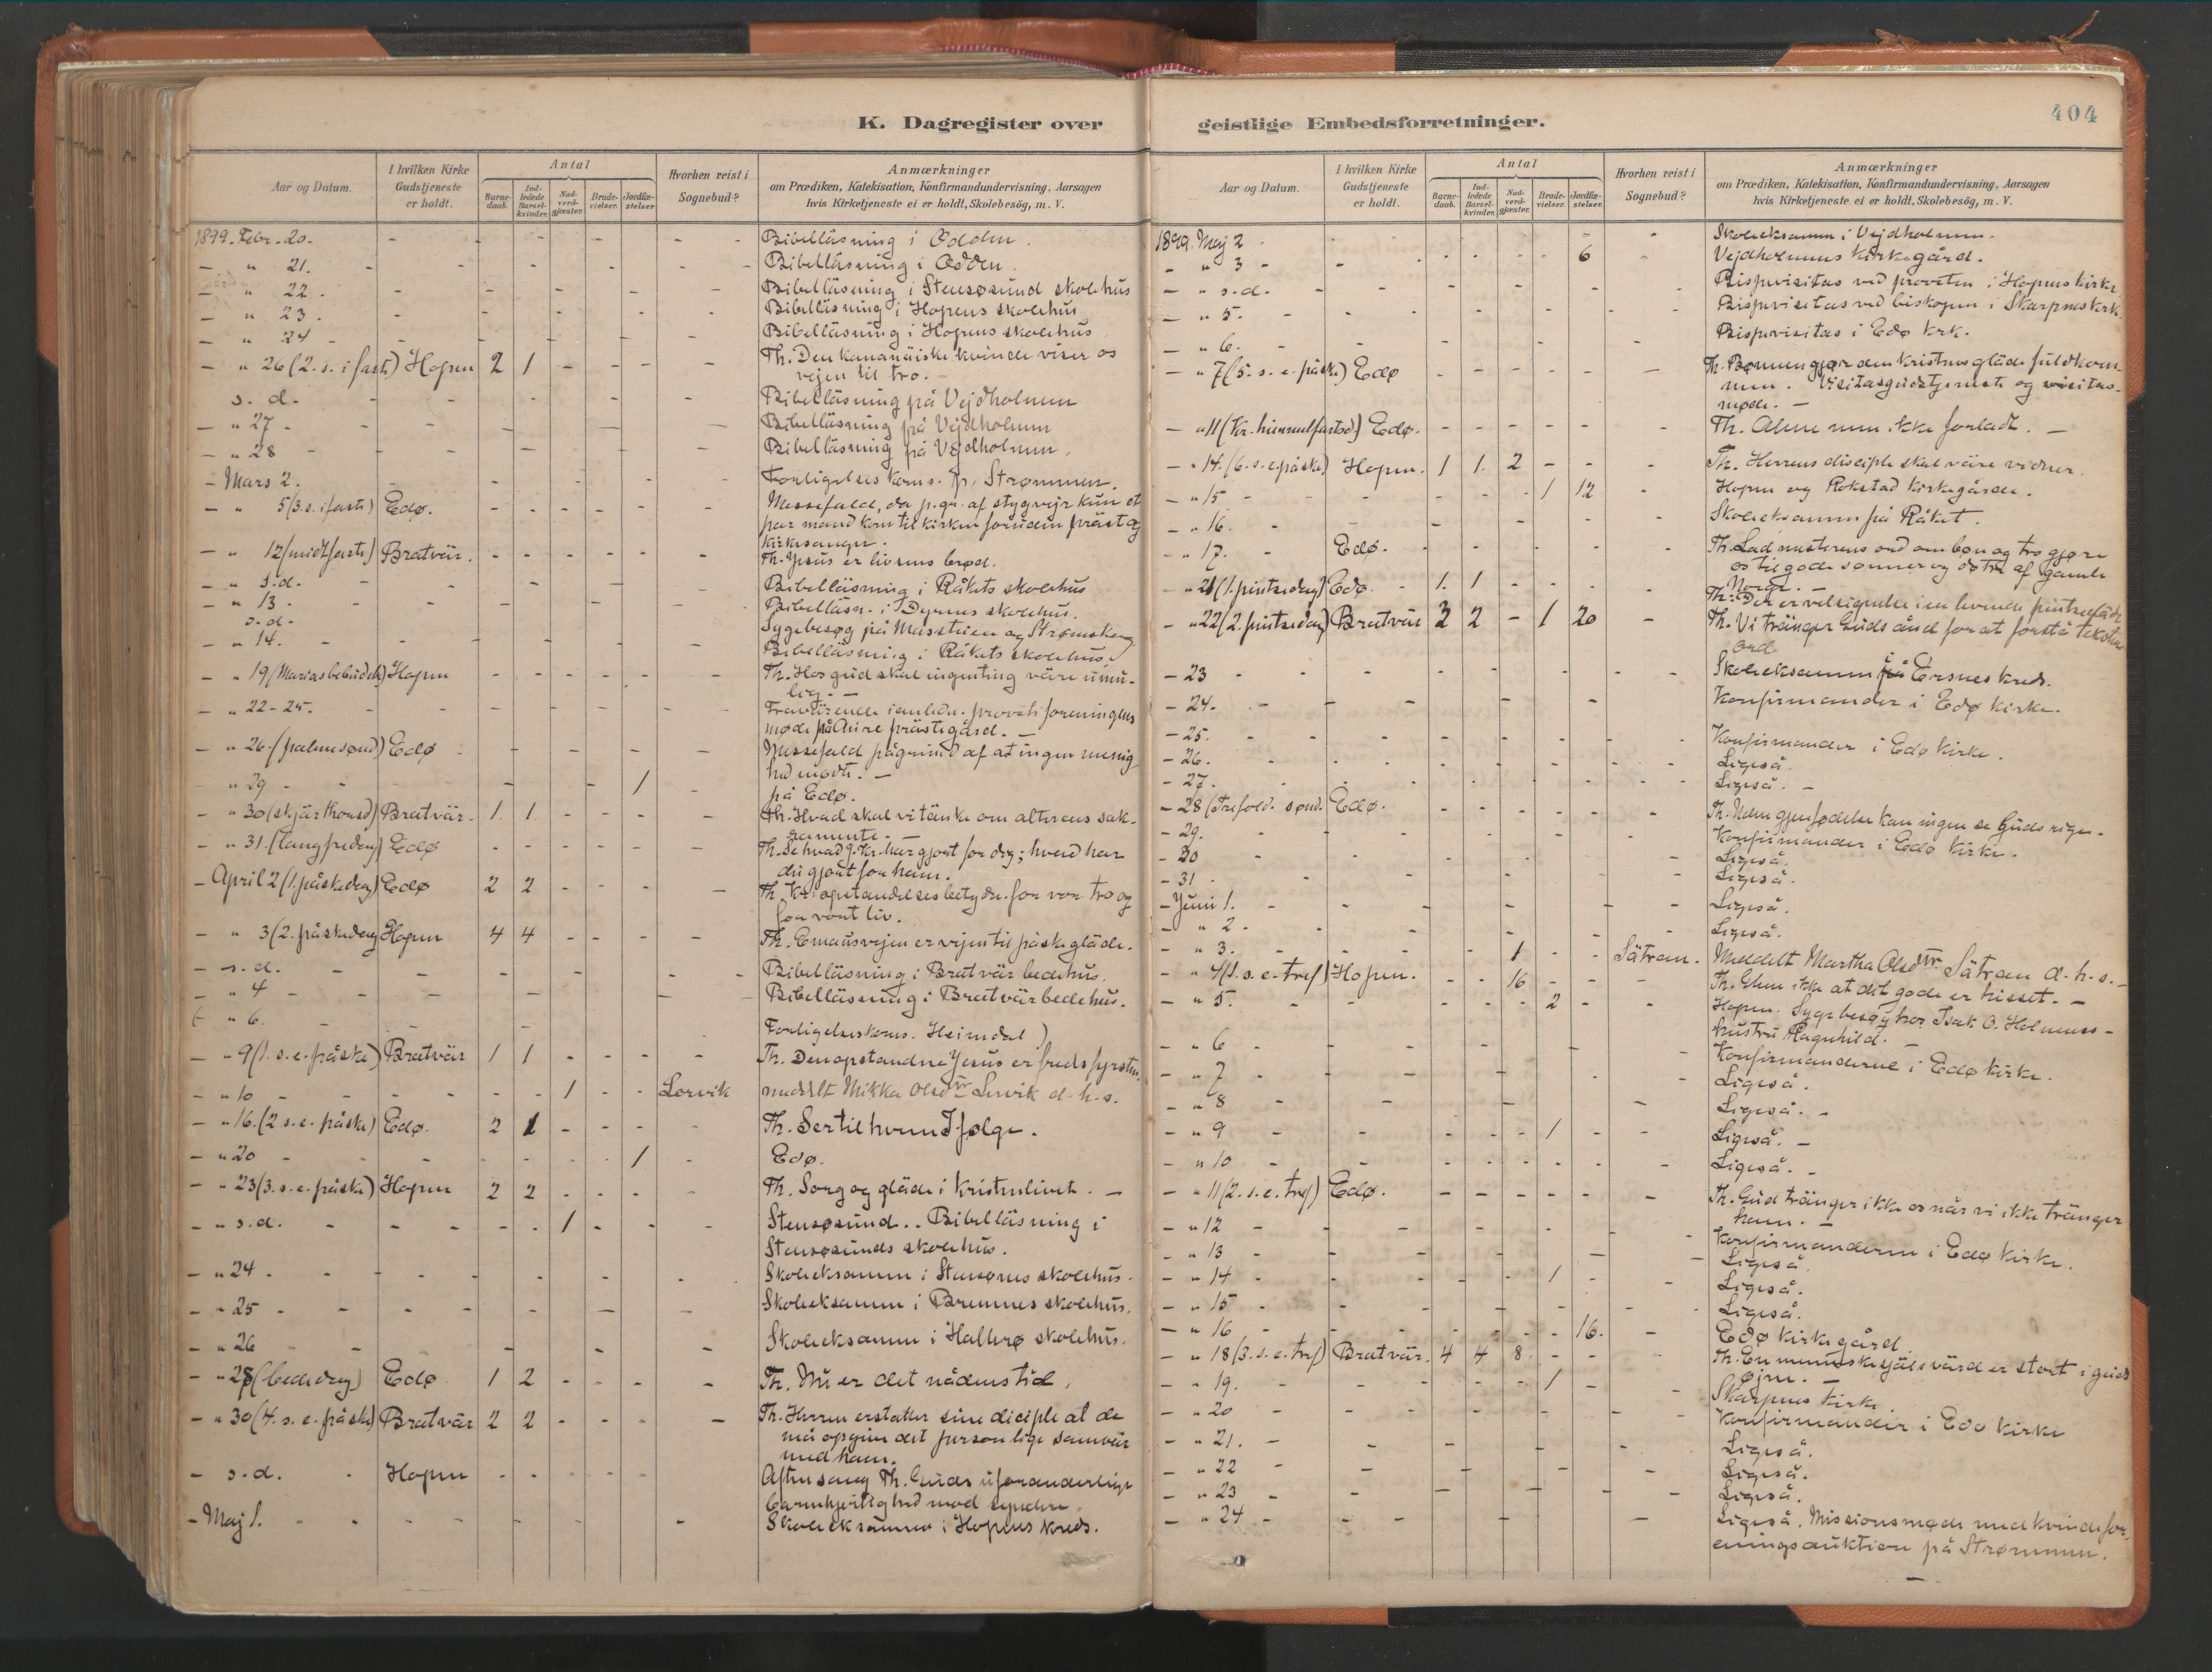 K. Dagregister over
Aar og Datum. I hvilken Kirke Gudstjeneste er holdt. Antal Barnedaab. Indledede Barselkvinder. Nadverdgjester. Brudevielser. Jordfæstelser Hvorhen reist i Sognebud? Anmærkninger om Prædiken, Katekisation, Konfirmandundervisning, Aarsagen hvis Kirketjeneste ei er holdt, Skolebesög, m. V.
1899. Febr. 20. - - - - Bibelläsning i Odden.
— " 21. - - - - Bibelläsning i Odden.
— " 22. - - - - Bibelläsning i Stensøsund skolehus
— " 23. - - - - Bibelläsning i Hopens skolehus
— " 24 - - - - Bibelläsning i Hopens skolehus
— " 26 (2. s. i faste) Hopen 2 1 - - - - Th. Den kananäiske kvinde viser os
vejen til tro. -
s. d. - - - - Bibelläsning på Vejdholmen
— " 27 - - - - Bibelläsning på Vejdholmen
— " 28 - - - - Bibelläsning på Vejdholmen.
— Mars 2. - - - - Forligelses koms. p. Strømmen.
— " 5 (3. s. i faste) Edø. - - - - - - Messefald, da p. gr. af stygvejr kun et
par mand kom til kirken foruden präst og
kirkesanger.
— " 12 (midtfaste) Bratvär. - - - - - - Th. Jesus er livsens brød.
— " s. d. - - - - Bibelläsning i Råkets skolehus
— " 13. - - - - Bibelläsn. i Dyrnes skolehus.
s. d. Sygebesøg på Masstuen og Strømskag
— " 14. - - - - Bibelläsning i Råkets skolehus.
— " 19 (Marias bebudels) Hopen - - - - - - Th. Hos gud skal ingenting väre umu-
lig. —
— " 22-25. - - - - Fravärende i anledn. provstiforeningens
møde på Aure prästegård. —
— " 26. (palmesønd) Edø - - - - - Messefald pågrund af at ingen menig-
hed mødte. —
" 29 - - - - 1 - på Edø.
— " 30 (skjärthorsd) Bratvär. 1 1 - - - - Th. Hvad skal vi tänke om alterens sak-
ramente. —
— " 31. (langfredag) Edø - - - - - - Th. Se hvad J. Kr. har gjort for dig; hvad har
du gjort for ham.
— April 2 (1. påskedag) Edø 2 2 - - - - Th. Kr. opstandelses betydn. for vor tro og
for vort liv.
— " 3 (2. påskedag) Hopen 4 4 - - - - Th. Emausvejen er vejen til påskegläde.
— s. d. - - - - Bibelläsning i Bratvär bedehus.
— " 4 - - - - Bibelläsning i Bratvär bedehus.
( " 6. - - - Forligelseskoms. Heimdal )
— " 9 (1. s. e. påske) Bratvär 1 1 - - - - Th. Den opstandne Jesus er fredsfyrsten.
— " 10 - - - - 1 - - Lervik meddelt Mikka Olsdtr Lervik d. h. s.
— " 16. (2 s. e. påske) Edø. 2 1 - - - - Th. Ser til hvem I følge.
— " 20 - - - - 1 - Edø.
— " 23 (3. s. e. påske) Hopen 2 2 - - - - Th. Sorg og gläde i kristenlivet. —
— " s. d. - - - - 1 - - - Stensøsund. . Bibelläsning i
Stensøsunds skolehus.
— " 24 - - - - Skoleeksamen i Stensøens skolehus.
— " 25 - - - - Skoleeksamen i Bremnes skolehus.
— " 26 - - - - Skoleeksamen i Hallerø skolehus.
— " 28 (bededag) Edø 1 2 - - - - Th. Nu er det nådens tid.
— " 30 (4. s. e. påske) Bratvär 2 2 - - - — Th. Herren erstatter sine diciple at de
må opgive det personlige samvär
med ham.
— s. d. - Hopen - - - - - Aftensang Th. Guds uforanderlige
barmhjertighed mod syndere.
— Maj 1. - - - - Skoleeksamen i Hopens kreds.
geistlige Embedsforretninger. 404
Aar og Datum. I hvilken Kirke Gudstjeneste er holdt. Antal Barnedaab. Indledede Barselkvinder. Nadverdgjester. Brudevielser. Jordfæstelser. Hvorhen reist i Sognebud? Anmærkninger om Prædiken, Katekisation, Konfirmandundervisning, Aarsagen hvis Kirketjeneste ei er holdt, Skolebesög, m. V.
1899. Maj 2 - - - Skoleeksamen i Vejdholmen.
— " 3 - - - - - - 6 - Vejdholmens kirkegård.
— " s. d. - - - - Bispevisitas ved provsten i Hopens kirke
— " 5. - - - - Bispevisitas ved biskopen i Skarpnes kirk
— " 6. - - - - Bispevisitas i Edø kirk.
— " 7 (5. s. e. påske) Edø - - - - - — Th. Bønnen gjør den kristnes gläde fuldkom-
men. Visitasgudstjeneste og visitas-
møde. —
— " 11 (Kr. himmelfartsd) Edø. - - - - - - Th. Alene men ikke forladt. —
— " 14. (6. s. e. påske) Hopen. 1 1. 2 - - - Th. Herrens disciple skal väre vidner.
— " 15 - - - - 1 12 - Hopen og Rokstad kirkegårde.
— " 16. - - - - Skoleeksamen på Råket.
— " 17. - Edø. - - - - - - Th. Lad mesterens ord om bøn og tro gjøre
os til gode sønner og døtre af gamle
Norge. —
— " 21 (1. pintsedag) Edø - 1. 1 - - - - Th. Der er velsignelse i en levende pintsegläde
— " 22 (2. pintsedag) Bratvär 3 2 - 1 20 - Th. Vi tränger Guds ånd for at forstå tekstens
ord
— 23 - - - - Skoleeksamen i Ersnes kreds.
— 24. - - - - Konfirmander i Edø kirke.
— 25. - - - - Konfirmander i Edø kirke.
— 26. - - - - Ligeså.
— 27. - - - - Ligeså. —
— 28 (Trefold. sønd. Edø. - - - - - - Th. Uden gjenfødelse kan ingen se Guds rige.
— 29. - - - - Konfirmander i Edø kirke.
— 30 - - - - Ligeså.
— 31 - - - - Ligeså.
— Juni 1. - - - - Ligeså.
— " 2. - - - - Ligeså.
— " 3. - - - - 1 - - Sätran. Meddelt Martha Olsdtr Sätran d. h. s. —
— " 4 (1. s. e. tref) Hopen. - - 16 - - - Th. Glem ikke at det gode er hisset. —
— " 5. - - - - 2 - - Hopen. Sygebesøg hos Isak O. Holmens-
hustru Ragnhild. —
— " 6 - - - - Konfirmanderne i Edø kirke.
— " 7 - - - - Ligeså.
— " 8 - - - - Ligeså. -
— " 9 - - - - 1 - - Ligeså. —
— " 10 - - - - Ligeså. -
— " 11 (2. s. e. tref) Edø. - - - - - - Th. Gud tränger ikke os når vi ikke tränger
ham. —
— " 12 - - - - Konfirmanderne i Edø kirke.
— " 13 - - - - Ligeså
— " 14 - - - - 1 - - Ligeså.
— " 15 - - - - Ligeså.
— " 16 - - - - - 16. - Edø kirkegård.
— " 18 (3. s. e. tref) Bratvär. 4 4 8 - - - Th. En menneskesjäls värd er stort i guds
øjne. —
— " 19. - - - - 1 - - Skarpnes kirke.
— " 20 - - - - Konfirmander i Edø kirke
— " 21. - - - - Ligeså.
— " 22 - - - - Ligeså.
— " 23 - - - - Ligeså.
— " 24 - - - - Ligeså. Missionsmøde med kvindefor-
eningsauktion på Strømmen.